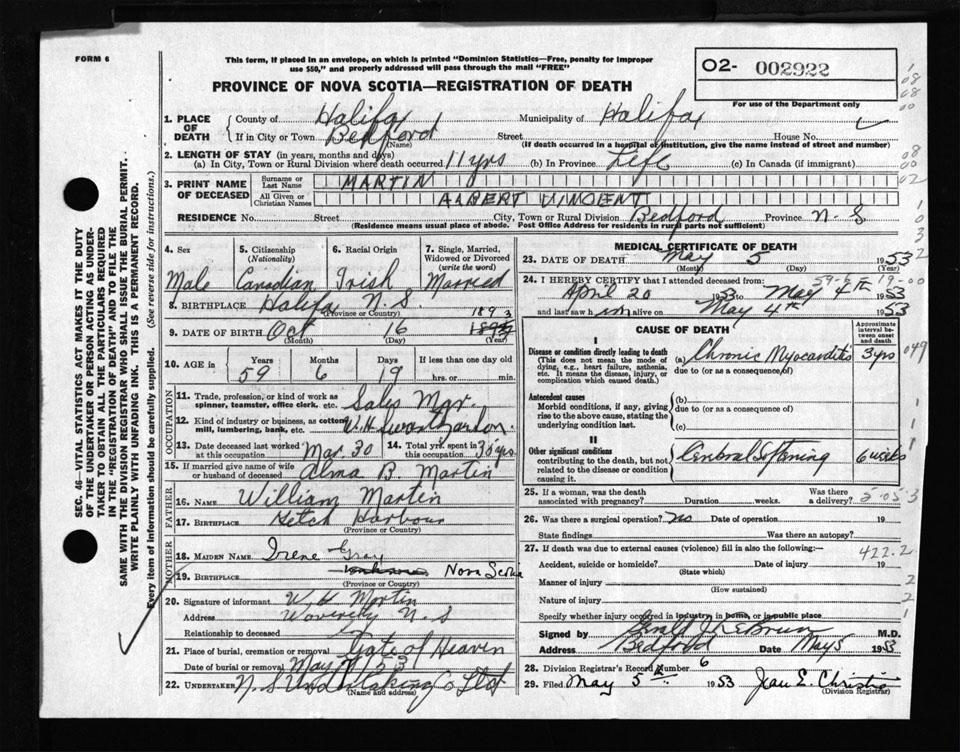 FORM 6
This form, if placed in an envelope, on which is printed "Dominion Statistics—Free, penalty for improper
use $50," and properly addressed will pass through the mail "FREE"
O2- 002922
For use of the Department only
PROVINCE OF NOVA SCOTIA—REGISTRATION OF DEATH
1. PLACE OF DEATH
County of Halifax Municipality of Halifax
If in City or Town Bedford Street House No.
(Name) (If death occurred in a hospital or institution, give the name instead of street and number)
2. LENGTH OF STAY (in years, months and days)
(a) In City, Town or Rural Division where death occurred 11 yrs (b) In Province Life (c) In Canada (if immigrant)
3. PRINT NAME OF DECEASED
Surname or Last Name MARTIN
All Given or Christian Names ALBERT VINCENT
RESIDENCE No. Street City, Town or Rural Division Bedford Province N. S
(Residence means usual place of abode. Post Office Address for residents in rural parts not sufficient)
4. Sex 5. Citizenship (Nationality) 6. Racial Origin 7. Single, Married, Widowed or Divorced (write the word)
Male Canadian Irish Married
8. BIRTHPLACE Halifax N. S.
(Province or Country)
1893
9. DATE OF BIRTH Oct 16
(Month) (Day) (Year)
10. AGE in Years Months Days If less than one day old
59 6 19 hrs. or min.
OCCUPATION
11. Trade, profession, or kind of work as spinner, teamster, office clerk, etc. Sales Mgr.
12. Kind of industry or business, as cotton mill, lumbering, bank, etc.
13. Date deceased last worked at this occupation Mar. 30 19
14. Total yrs. spent in this occupation 35 yrs.
15. If married give name of wife or husband of deceased Alma B. Martin
FATHER
16. NAME William Martin
17. BIRTHPLACE Ketch Harbour
(Province or Country)
MOTHER
18. MAIDEN NAME Irene Gray
19. BIRTHPLACE Nova Scotia
(Province or Country)
20. Signature of informant W. H Martin
Address Waverley N. S
Relationship to deceased
21. Place of burial, cremation or removal Gate of Heaven
Date of burial or removal May 7/53
22. UNDERTAKER N. S Undertaking Co Ltd
(Name and address)
MEDICAL CERTIFICATE OF DEATH
23. DATE OF DEATH May 5 1953
(Month) (Day) (Year)
24. I HEREBY CERTIFY that I attended deceased from:
April 20 1953 to May 4th 1953
and last saw him alive on May 4th 1953
CAUSE OF DEATH
Approximate interval between onset and death
I
Disease or condition directly leading to death (a) Chronic Myocarditis 3 yrs
(This does not mean the mode of dying, e.g., heart failure, asthenia, etc. It means the disease, injury, or complication which caused death.)
due to (or as a consequence of)
Antecedent causes
Morbid conditions, if any, giving rise to the above cause, stating the underlying condition last.
(b)
due to (or as a consequence of)
(c)
II
Other significant conditions
contributing to the death, but not related to the disease or condition causing it.
Cerebral Softening 6 weeks
25. If a woman, was the death associated with pregnancy? Duration weeks. Was there a delivery?
26. Was there a surgical operation? No Date of operation 19
State findings Was there an autopsy?
27. If death was due to external causes (violence) fill in also the following:—
422.2
Accident, suicide or homicide? Date of injury 19
(State which)
Manner of injury
(How sustained)
Nature of injury
Specify whether injury occurred in industry, in home, or in public place
Signed by M.D.
Address Bedford Date May 5 1953
28. Division Registrar's Record Number 6
29. Filed May 5th 1953 Jean E. Christie
(Division Registrar)
SEC. 46—VITAL STATISTICS ACT MAKES IT THE DUTY
OF THE UNDERTAKER OR PERSON ACTING AS UNDER-
TAKER TO OBTAIN ALL THE PARTICULARS REQUIRED
IN THE "REGISTRATION OF DEATH" AND TO FILE THE
SAME WITH THE DIVISION REGISTRAR WHO SHALL ISSUE THE BURIAL PERMIT.
WRITE PLAINLY WITH UNFADING INK. THIS IS A PERMANENT RECORD.
Every item of information should be carefully supplied. (See reverse side for instructions.)